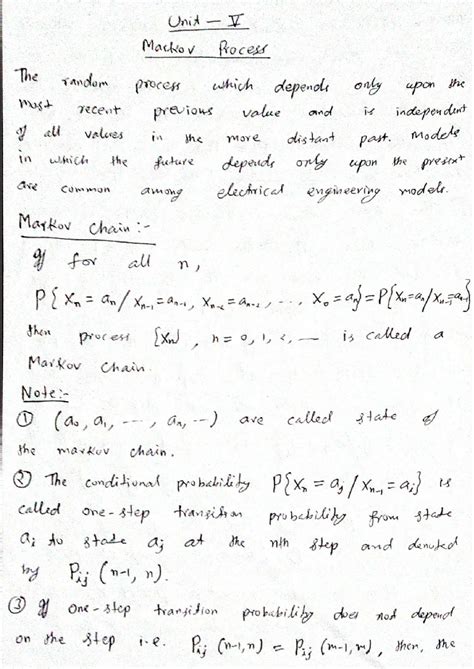 Unit - V
Markov Process
The random process which depends only upon the
most recent previous value and is independent
of all values in the more distant past. Models
in which the future depends only upon the present
are common among electrical engineering models.
Markov chain :-
If for all n,
P{Xn = an / Xn-1 = an-1, Xn-2 = an-2, ... X0 = a0} = P{Xn = an / Xn-1 = an-1}
then process {Xn}, n = 0, 1, 2, — is called a
Markov chain.
Note :-
① (a0, a1, ---, an, --) are called state of
the markov chain.
② The conditional probability P{Xn = aj / Xn-1 = ai} is
called one-step transition probability from state
ai to state aj at the nth step and denoted
by Pij (n-1, n).
③ If one-step transition probability does not depend
on the step i.e. Pij (n-1, n) = Pij (m-1, m), then, the